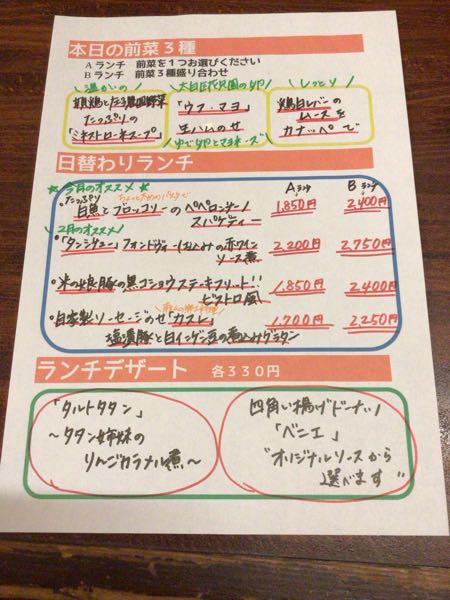 本日の前菜3種
Aランチ 前菜を1つお選びください
Bランチ 前菜3種盛り合わせ
温かいの
たっぷりの
「ミネストローネスープ」
「ウフ・マヨ」
生ハムのせ
ゆで卵とマヨネーズ
しっとり
鶏白レバーの
ムースを
カナッペで
日替わりランチ
★今日のオススメ★
Aランチ
Bランチ
たっぷり
・白魚とブロッコリーのペペロンチーノ
スパゲティー
1,850円
2,400円
2月のオススメ!
・「タンシチュー」フォンドヴォー仕込みの赤ワイン
ソース煮
2,200円
2,750円
・米の娘豚の黒コショウステーキフリット!!
ビストロ風
1,850円
2,400円
・自家製ソーセージのせ「カスレ」
塩漬豚と白インゲン豆の煮込みグラタン
1,700円
2,250円
ランチデザート 各330円
「タルトタタン」
～タタン姉妹の
りんごカラメル煮～
四角い揚げドーナッツ
「ベニエ」
"オリジナルソースから
選べます"